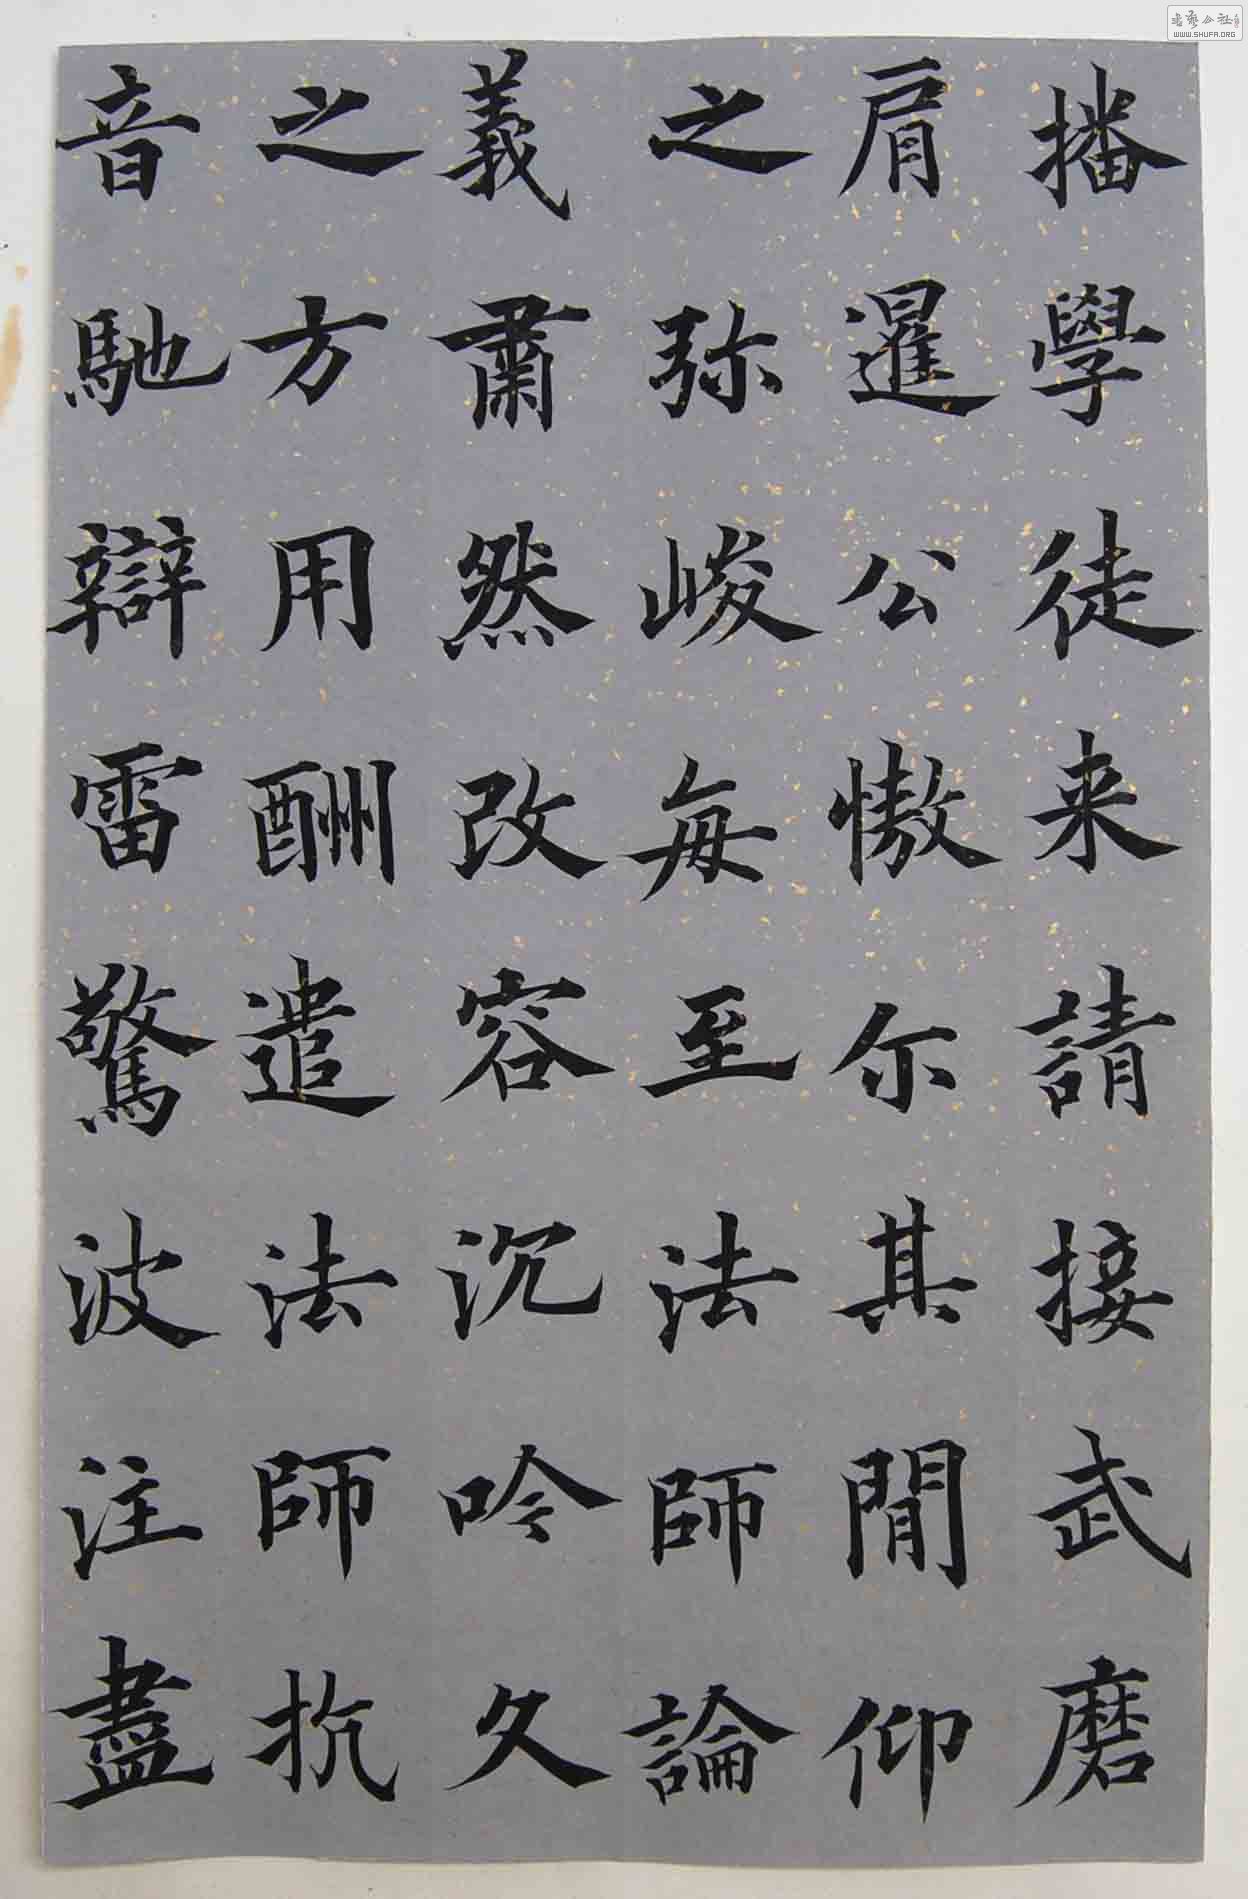 播學徒来請接武磨
肩暹公慠尒其閒仰
之弥峻每至法師論
義肅然改容沉吟久
之方用酬遣法師抗
音馳辯雷驚波注盡
WWW.SHUFA.ORG